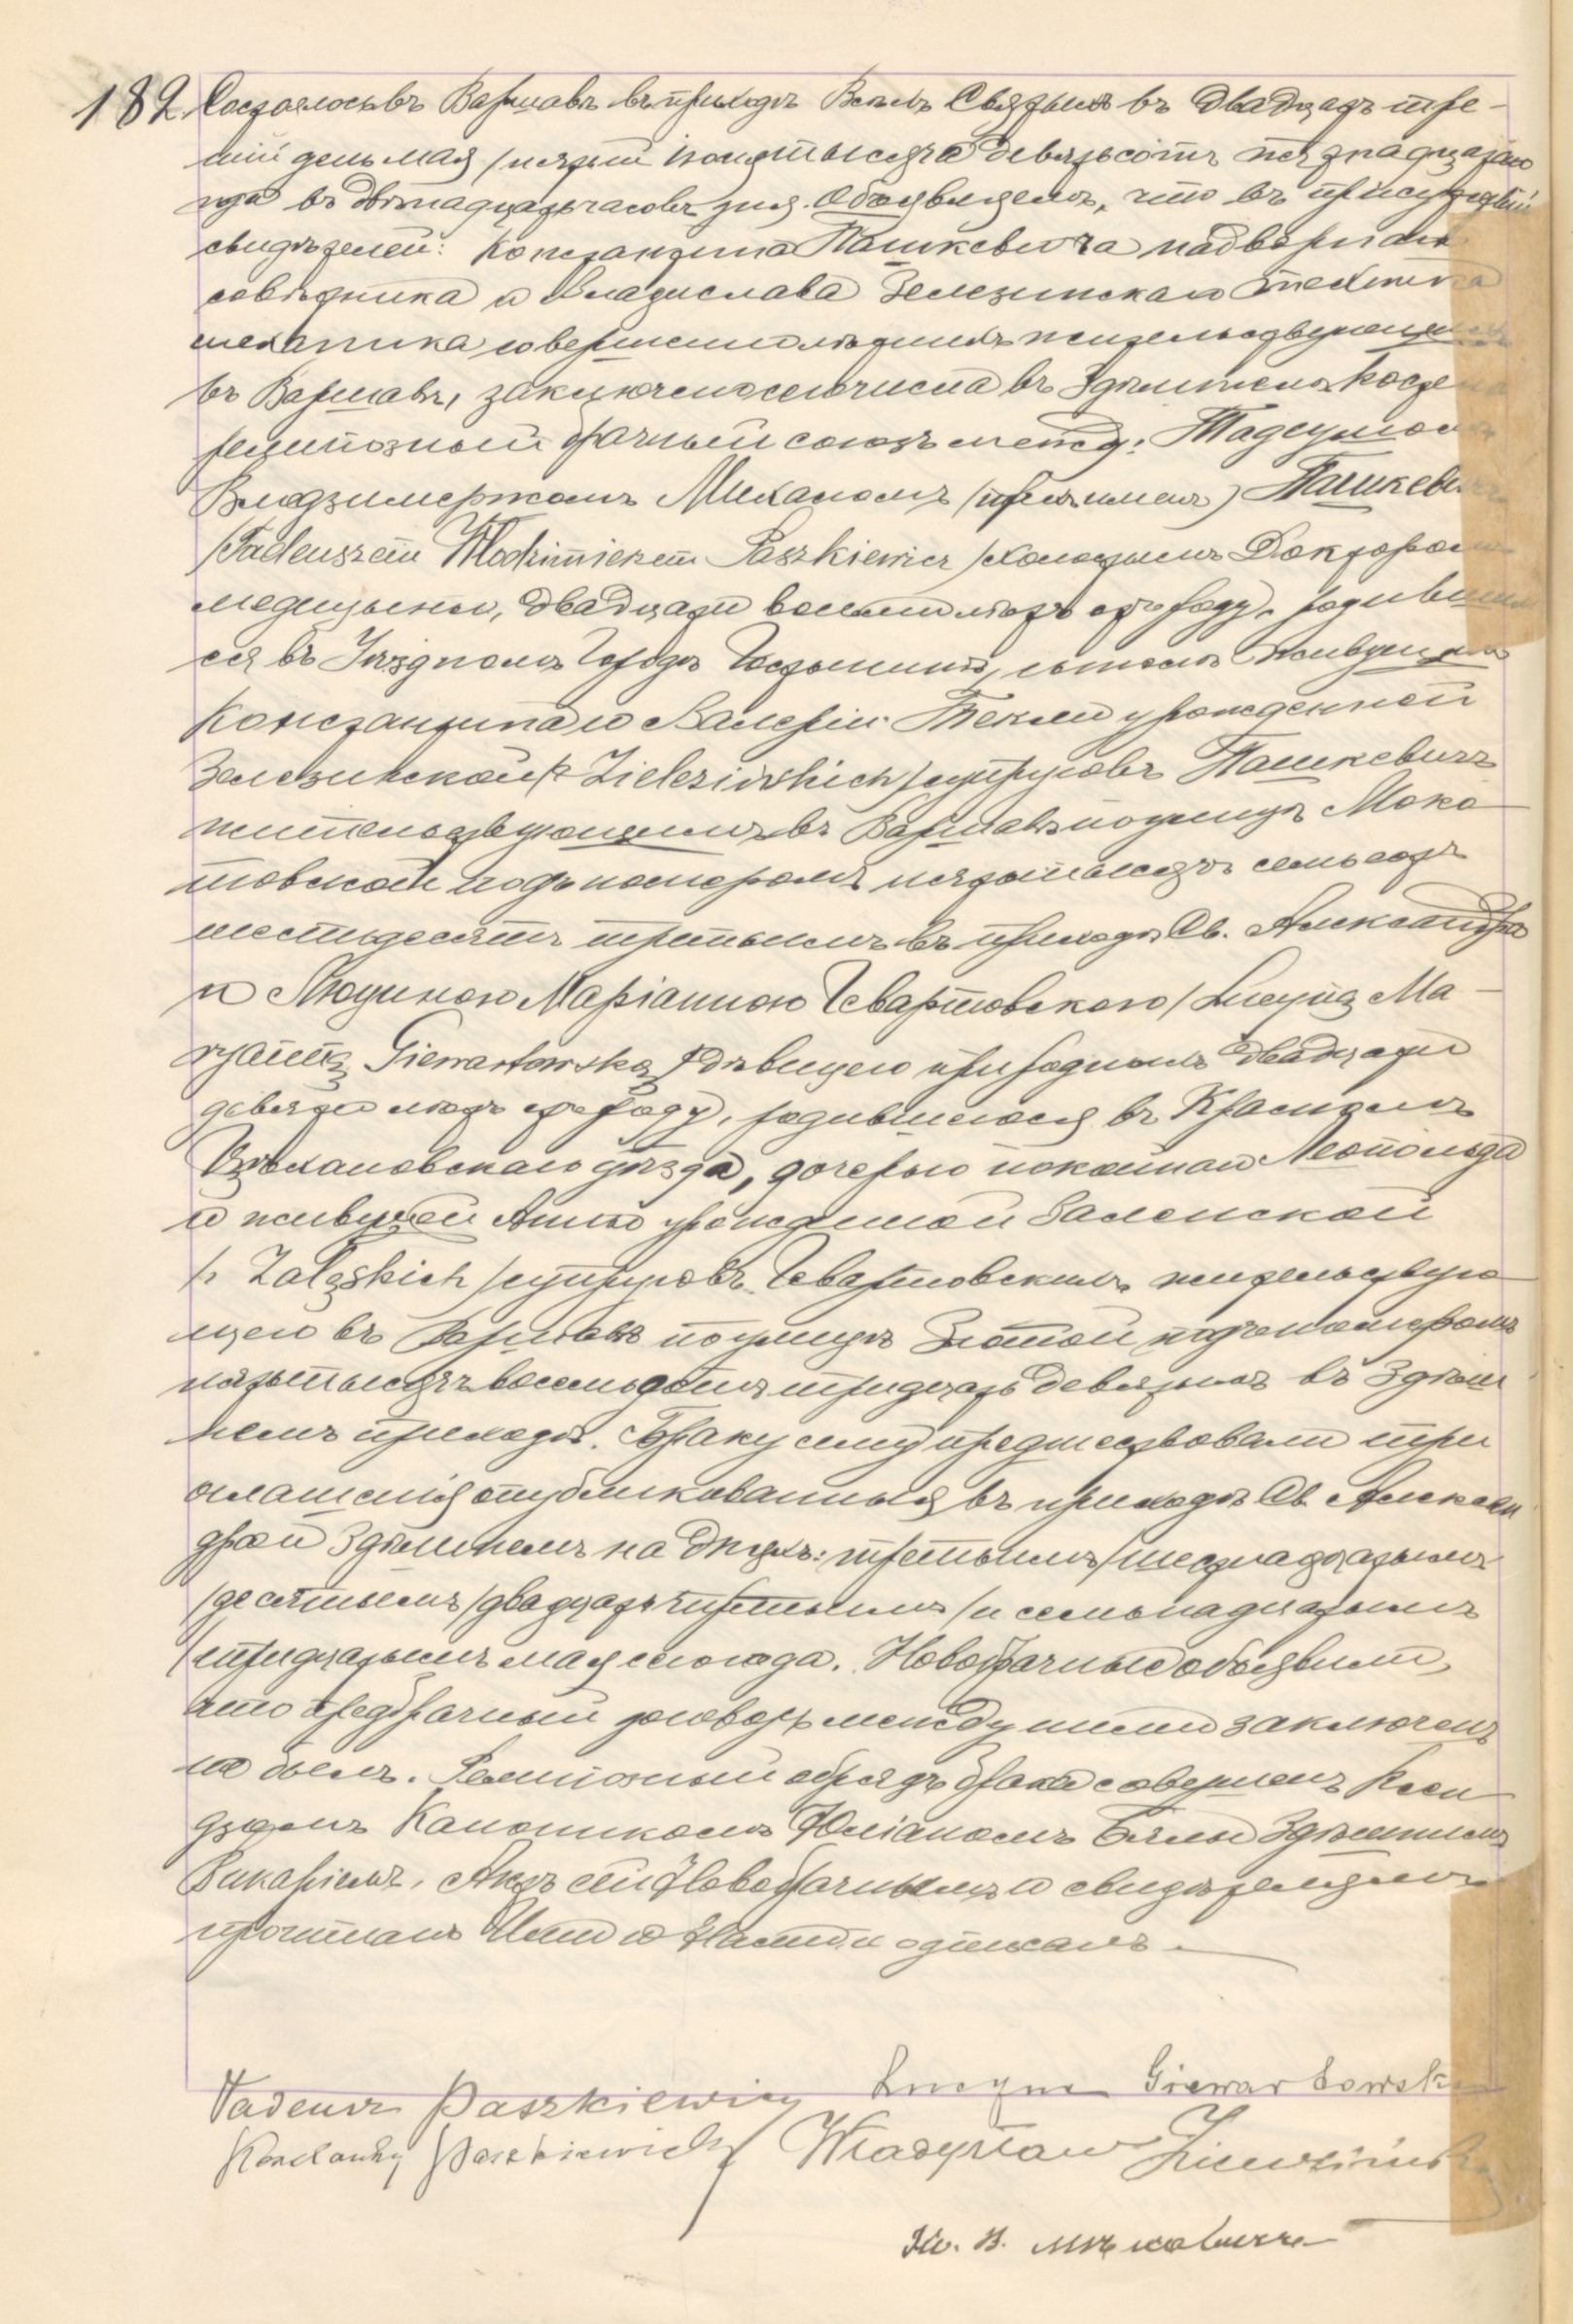 182. Состоялось въ Варшавѣ въ приходѣ Всѣхъ Святыхъ въ двадцать тре-
тій день мая /пятый іюня/ тысяча девятьсотъ пятнадцатаго
года въ двѣнадцать часовъ дня. Объявляемъ, что въ присутствіи
свидѣтелей: Константина Пашкевича надворнаго
совѣтника и Владислава Зелезинскаго техника
механика совершеннолѣтнихъ жительствующихъ
въ Варшавѣ, заключенъ сего числа въ здѣшнемъ костелѣ
религіозный брачный союзъ между: Тадеушомъ
Влодзимержомъ Михаломъ (трехъ именъ) Пашкевичъ
/Tadeuszem Włodzimierzem Paszkiewicz/ холостымъ Докторомъ
медицины, двадцати восьми лѣтъ отъ роду, родившим
ся въ Уѣздномъ Городѣ Гостынинѣ, сыномъ живущихъ
Константина и Валеріи Текли урожденной
Зелезинской /z Zielezińskich/ супруговъ Пашкевичъ
жительствующимъ въ Варшавѣ по улицѣ Моко
товской подъ номеромъ пять тысячъ семьсотъ
шестьдесятъ третьимъ въ приходѣ Св. Александра
и Люциною Маріанною Гевартовскою /Lucyną Ma-
ryanną Giewartowską/ дѣвицею при родныхъ двадцати
девяти лѣтъ отъ роду, родившеюся въ Красномъ
Цѣхановскаго уѣзда, дочерью покойнаго Леопольда
и живущей Анны урожденной Заленской
/z Załęskich/ супруговъ Гевартовскихъ, жительствую
щею въ Варшавѣ по улицѣ Злотой подъ номеромъ
пять тысячъ восемьсотъ тридцать девятымъ въ здѣш
немъ приходѣ. Браку сему предшествовали три
оглашенія опубликованныя въ приходѣ Св. Алексан
дра и здѣшнемъ на дняхъ: третьимъ /шестнадцатымъ/
/десятымъ /двадцать третьимъ/ и семнадцатымъ
/тридцатымъ мая сего года. Новобрачные объявили,
что предбрачный договоръ между ними заключенъ
не былъ. Религіозный обрядъ брака совершенъ Ксен
дзомъ Каноникомъ Юліаномъ Бялы здѣшнимъ
Викаріемъ. Актъ сей Новобрачнымъ и свидѣтелямъ
прочитанъ Ими и Нами подписанъ.
Tadeusz Paszkiewicz Lucyna Giewartowska
Konstanty Paszkiewicz Władysław Zieleziński